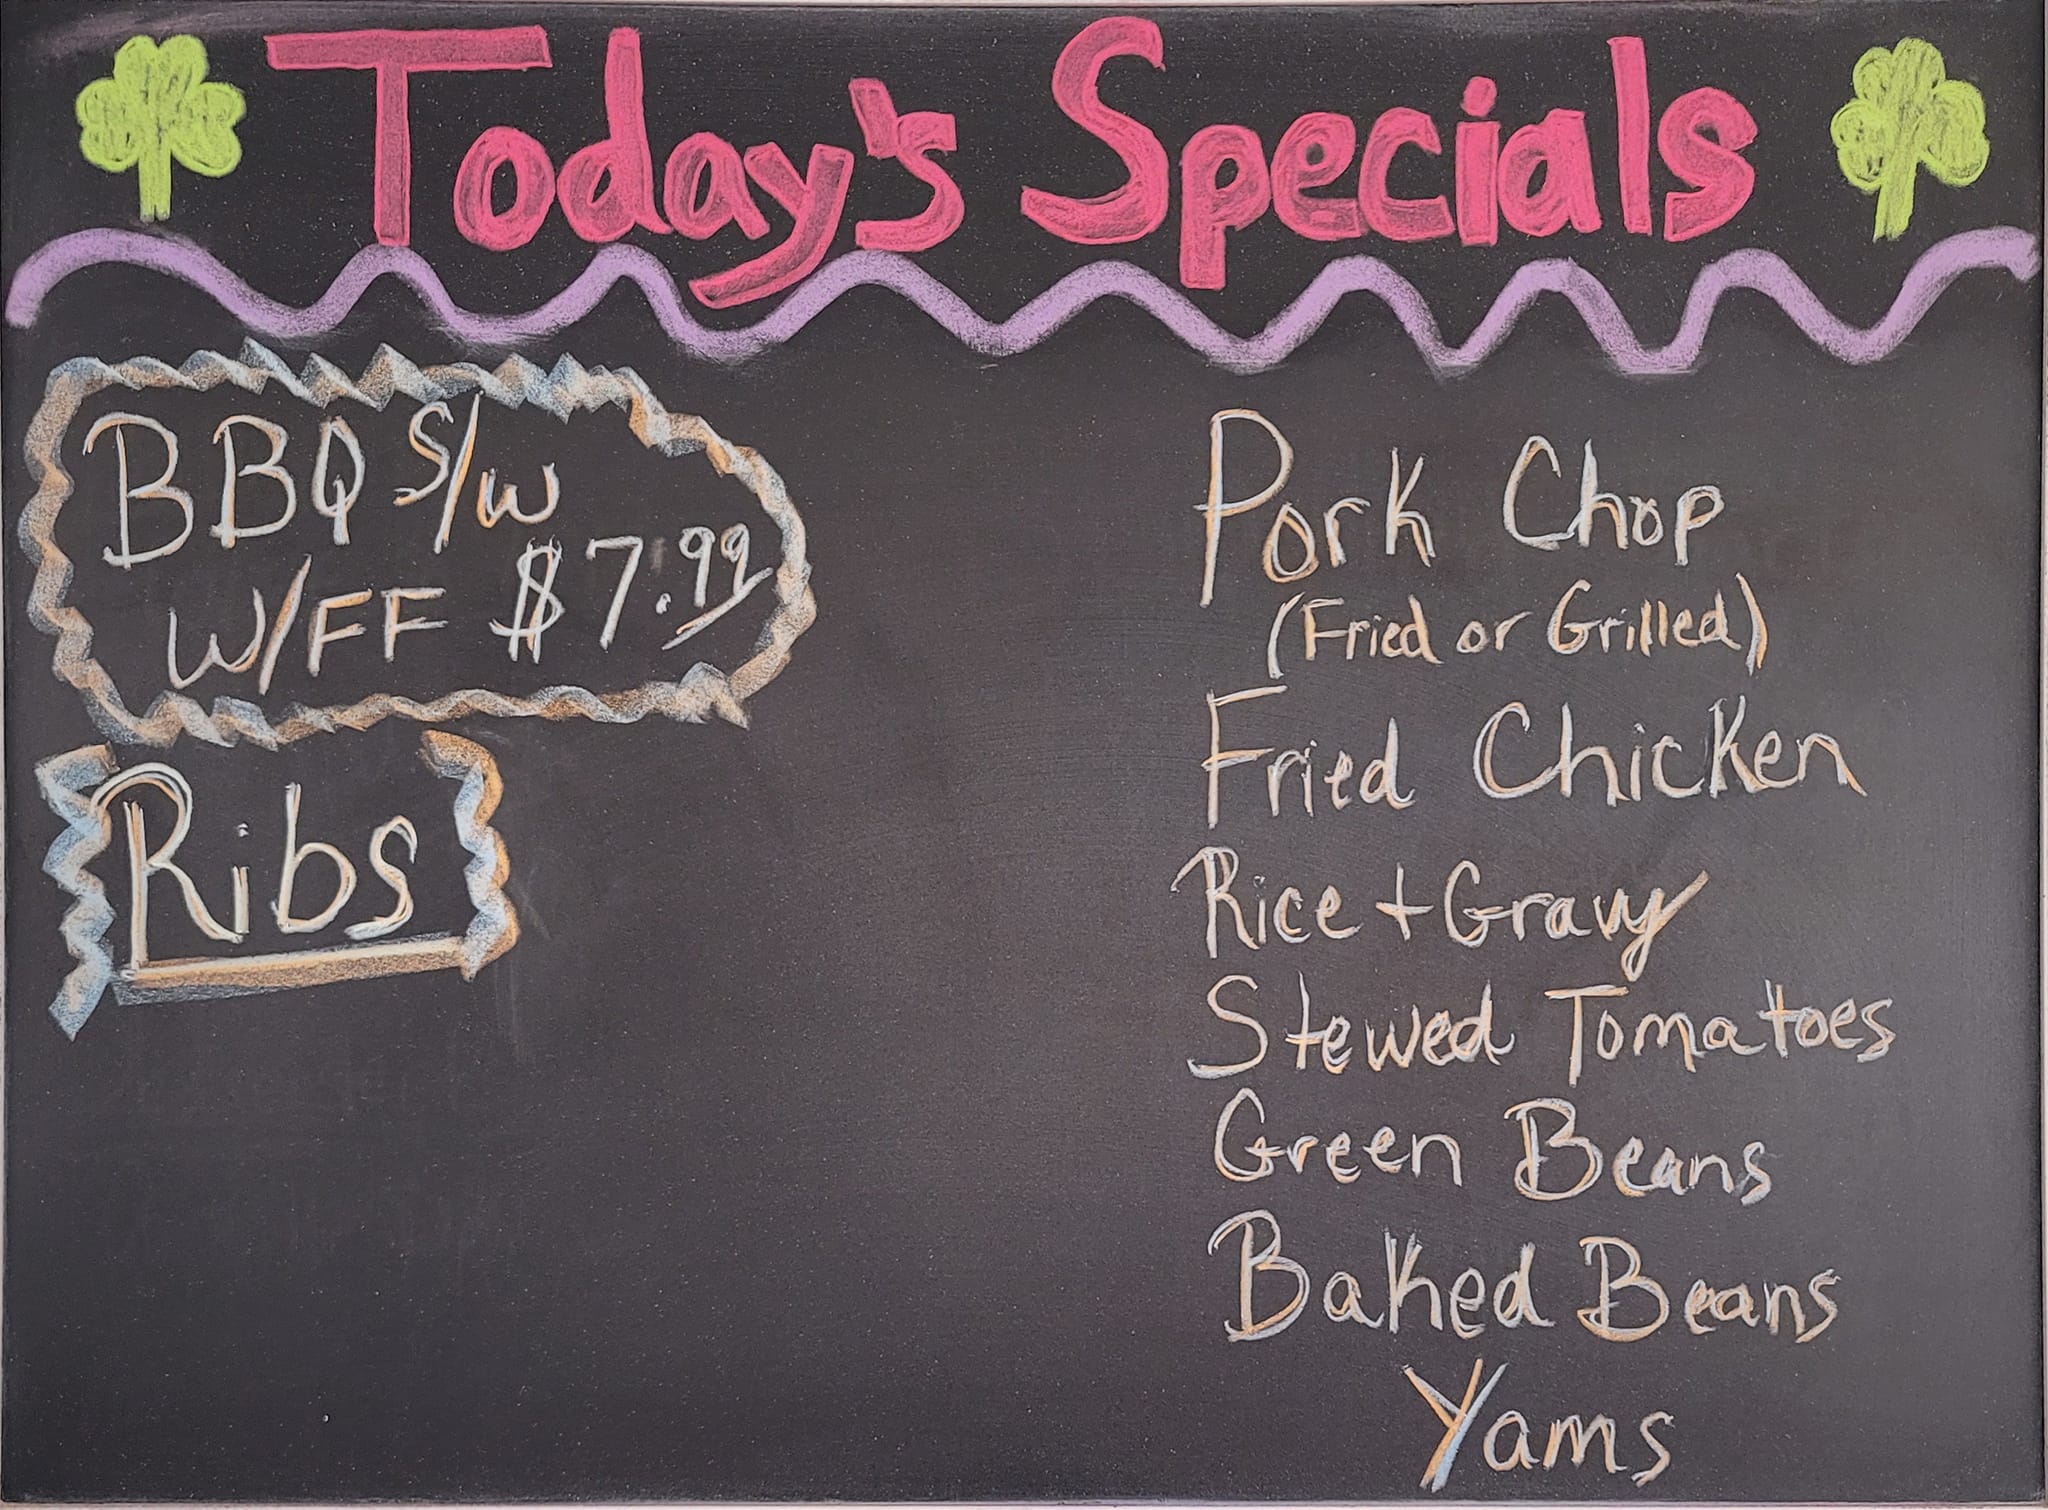 Today's Specials
BBQ S/w
W/FF $7.99
Ribs
Pork Chop
(Fried or Grilled)
Fried Chicken
Rice + Gravy
Stewed Tomatoes
Green Beans
Baked Beans
Yams